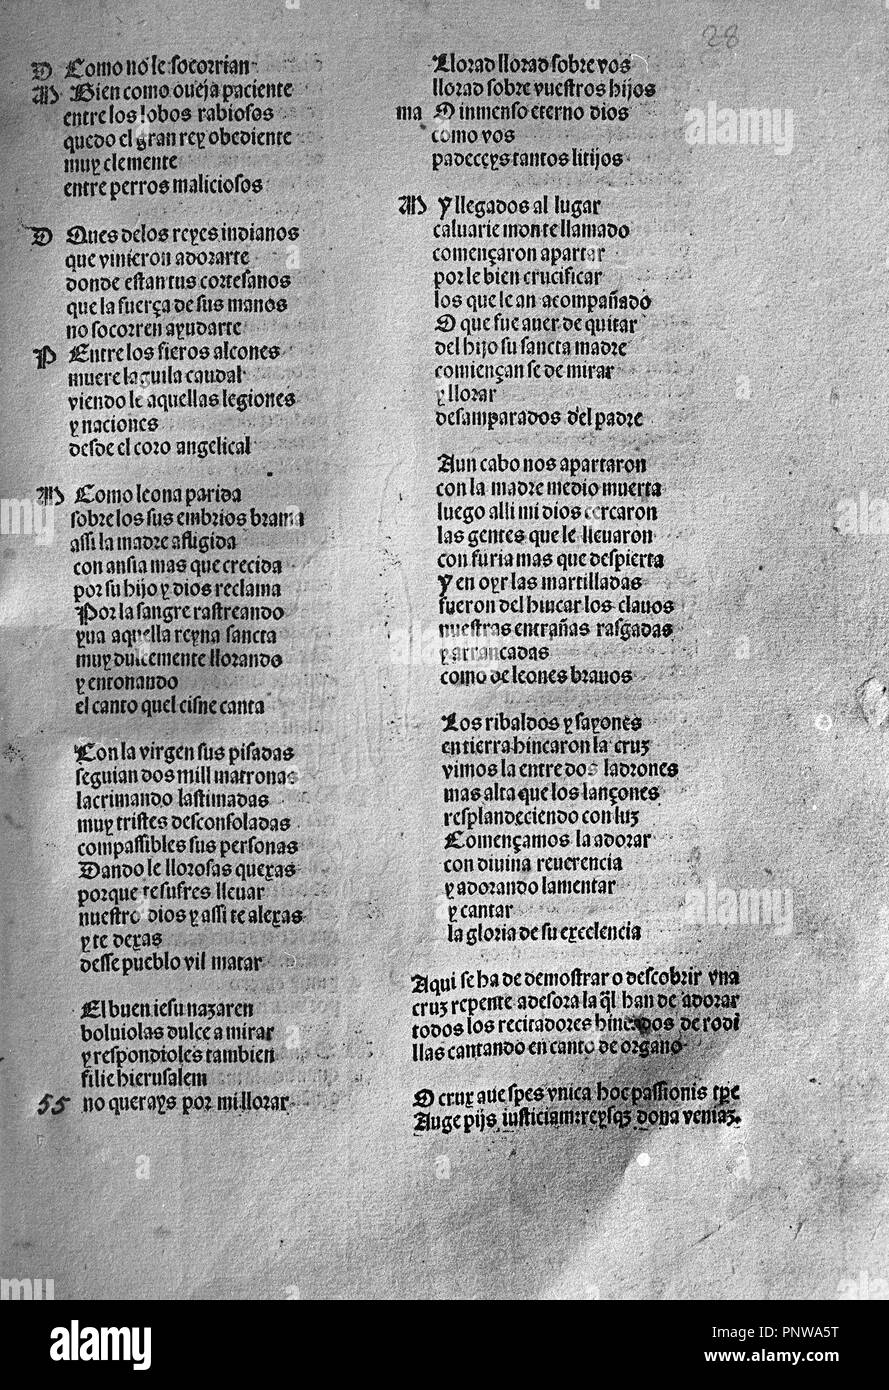 28
D Como no le socorrian
M Bien como oueja paciente
entre los lobos rabiosos
quedo el gran rey obediente
muy clemente
entre perros maliciosos
D Ques delos reyes indianos
que vinieron adorarte
donde estan tus cortesanos
que la fuerça de sus manos
no socorren ayudarte
P Entre los fieros alcones
muere laguila caudal
viendo le aquellas legiones
y naciones
desde el coro angelical
M Como leona parida
sobre los sus embrios brama
assi la madre afligida
con ansia mas que crecida
por su hijo y dios reclama
Por la sangre rastreando
yua aquella reyna sancta
muy dulcemente llorando
y entonando
el canto quel cisne canta
Con la virgen sus pisadas
seguian dos mill matronas
lacrimando lastimadas
muy tristes desconsoladas
compassibles sus personas
Dando le llorosas quexas
porque te sufres lleuar
nuestro dios y assi te alexas
y te dexas
desse pueblo vil matar
El buen iesu nazaren
boluiolas dulce a mirar
y respondioles tambien
filie hierusalem
55 no querays por mi llorar
Llorad llorad sobre vos
llorad sobre vuestros hijos
ma O inmenso eterno dios
como vos
padeceys tantos litijos
M Y llegados al lugar
caluarie monte llamado
començaron apartar
por le bien crucificar
los que le an acompañado
O que fue auer de quitar
del hijo su sancta madre
comiençan se de mirar
y llorar
desamparados d'el padre
Aun cabo nos apartaron
con la madre medio muerta
luego alli mi dios cercaron
las gentes que le lleuaron
con furia mas que despierta
Y en oyr las martilladas
fueron del hincar los clauos
nuestras entrañas rasgadas
y arrancadas
como de leones brauos
Los ribaldos y sayones
en tierra hincaron la cruz
vimos la entre dos ladrones
mas alta que los lançones
resplandeciendo con luz
Començamos la adorar
con diuina reuerencia
y adorando lamentar
y cantar
la gloria de su excelencia
Aqui se ha de demostrar o descobrir vna
cruz repente adesora la q̃l han de adorar
todos los recitadores hincados de rodi
llas cantando en canto de organo
O crux aue spes vnica hoc passionis tp̃e
Auge pijs iusticiam: reysqz dona veniaz.
alamy
alamy
alamy
alamy
alamy
Image ID: PNWA5T
www.alamy.com